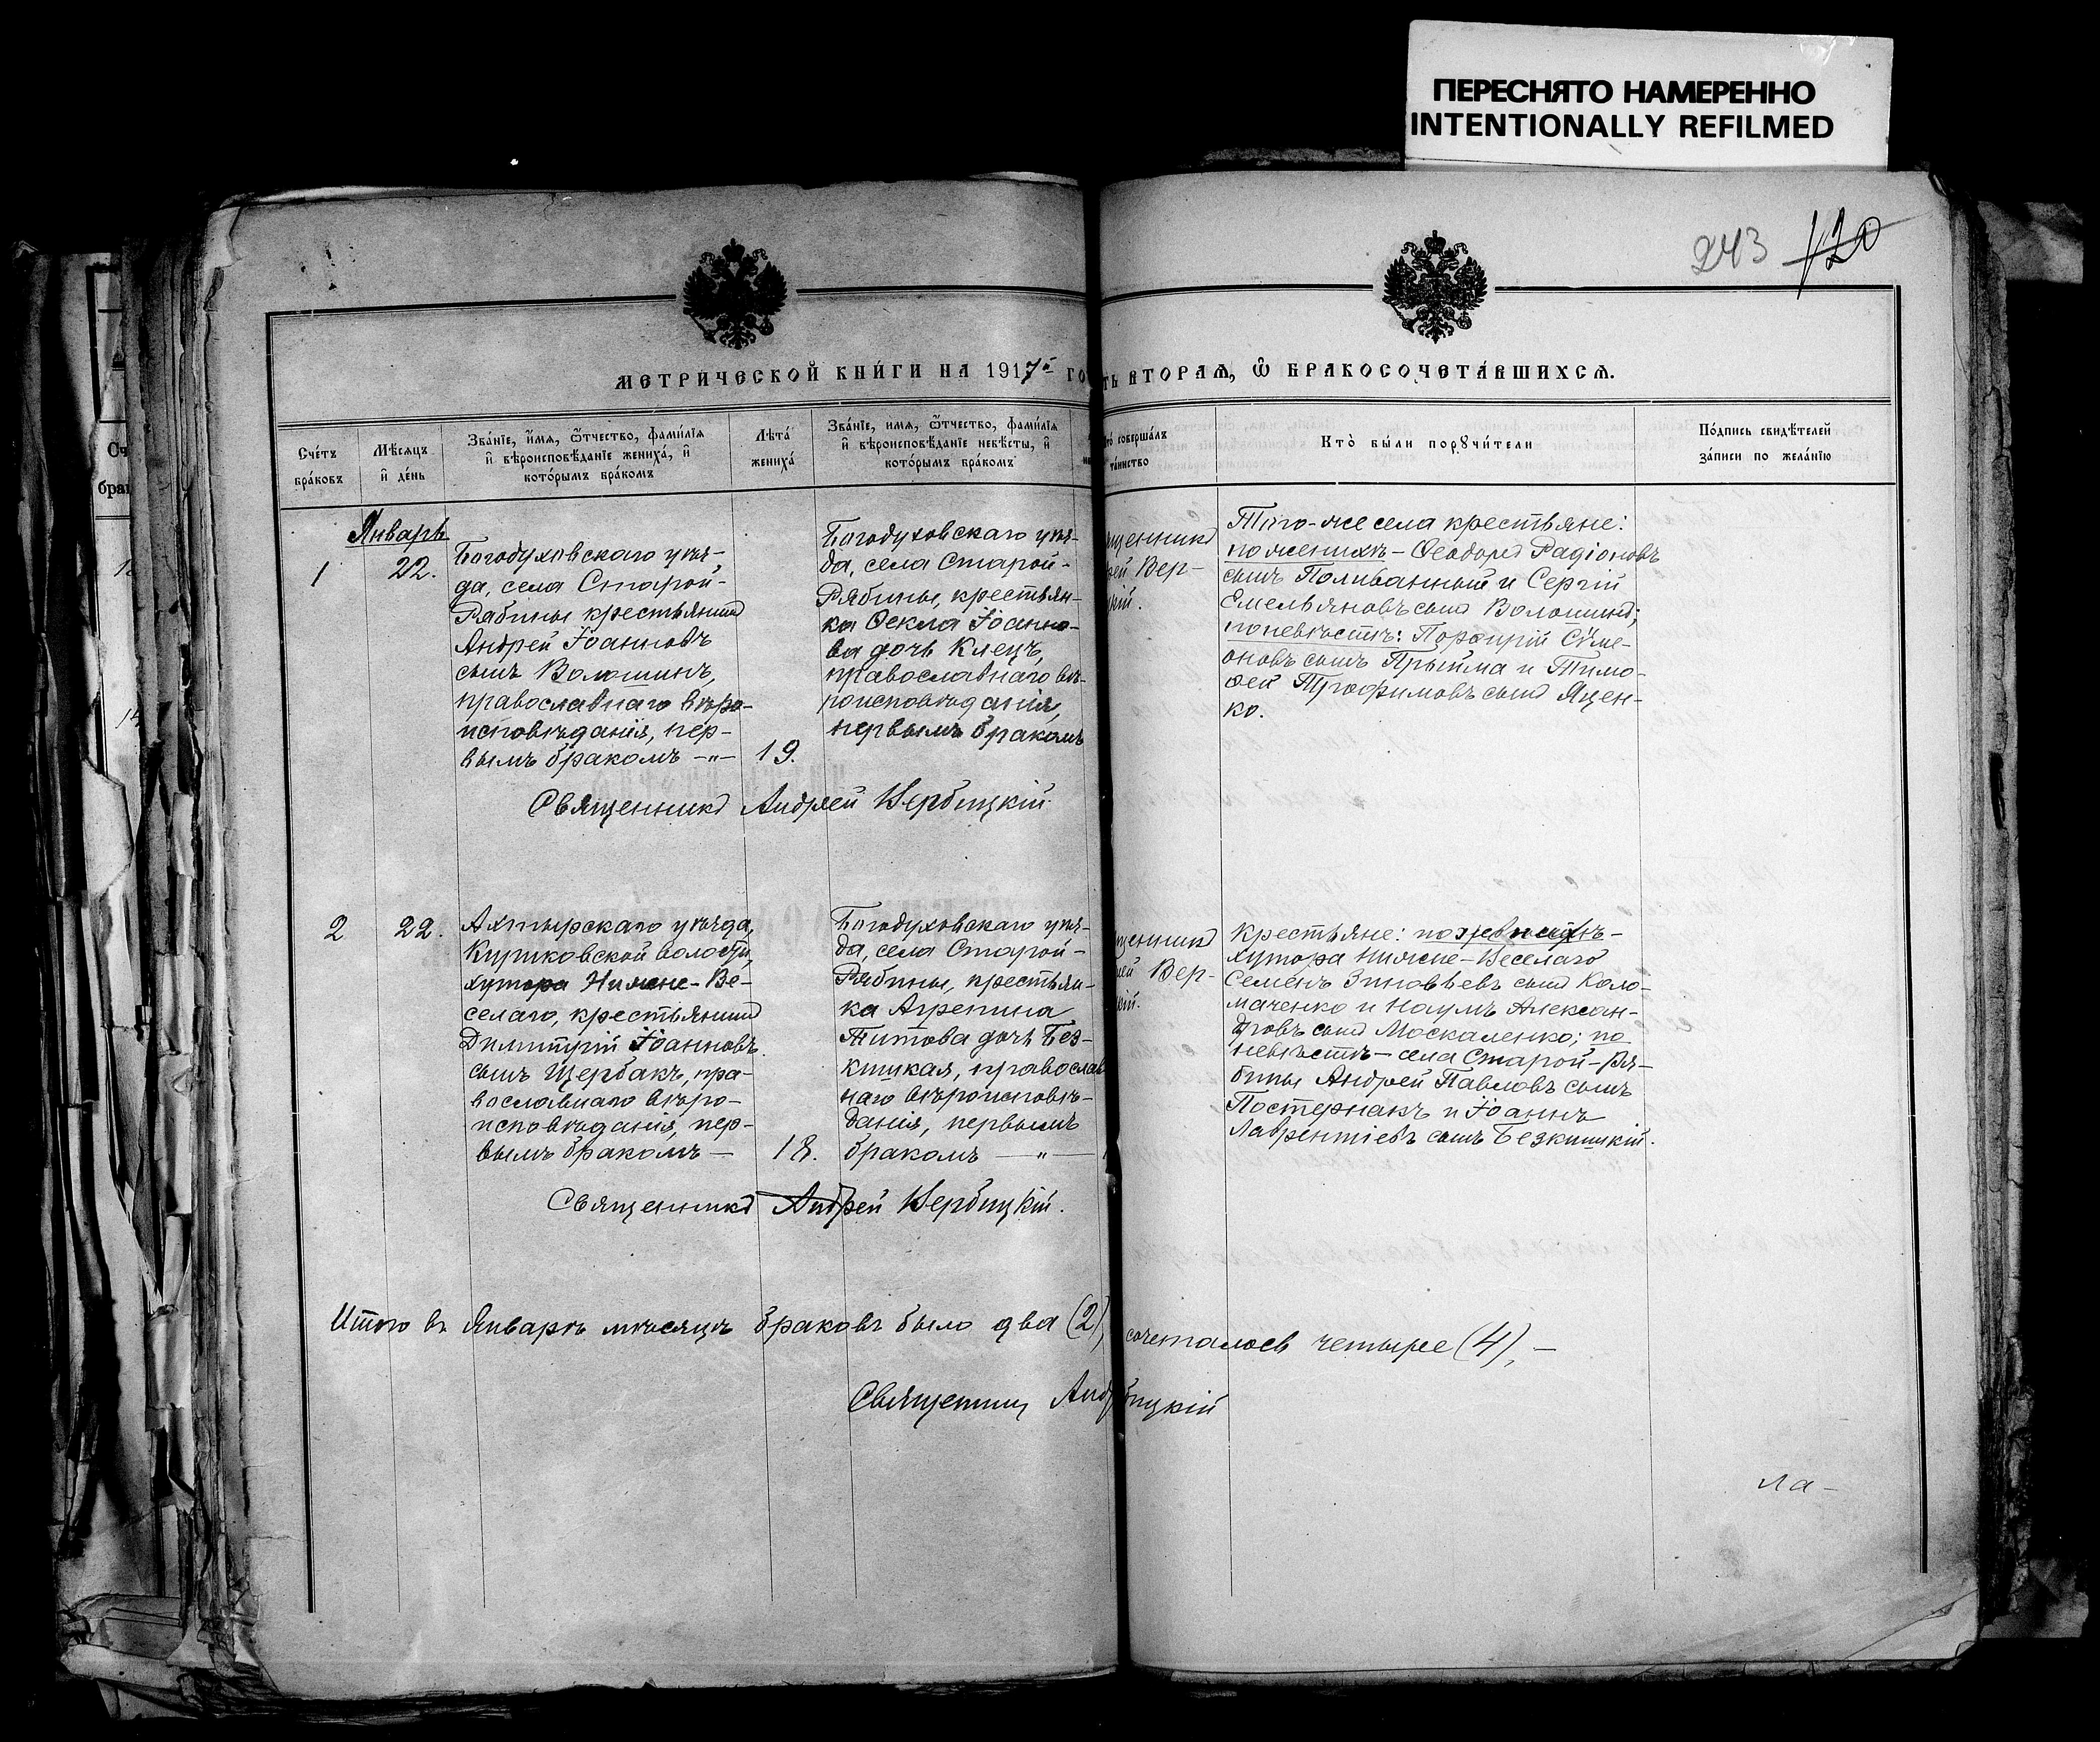 ПЕРЕСНЯТО НАМЕРЕННО
INTENTIONALLY REFILMED
243 120
МЕТРИЧЕСКОЙ КНИ́ГИ НА 1917 го
ть ВТОРАѦ, Ѽ БРАКОСОЧЕТА́ВШИХСѦ.
Сче́тъ
бра́ковъ
Мѣ́сяцъ
и҆ де́нь
Зва́нїе, и҆́мя, ѻ҆́тчество, фами́лїя
и҆ вѣроисповѣ́данїе жениха̀, и҆
кото́рымъ бра́комъ
Лѣта̀
жениха̀
Зва́нїе, и҆мя, ѻ҆́тчество, фами́лїя
и҆ вѣроисповѣ́данїе невѣ́сты, и҆
кото́рымъ бра́комъ
то̀ соверша́лъ
та́инство
Кто̀ бы́ли порꙋчи́тели
По́дпись свидѣ́телей
за́писи по жела́нїю
Январь
1
22.
Богодуховскаго уѣз-
да, села Старой-
Рябины крестьянинъ
Андрей Іоанновъ
сынъ Волошинъ,
православнаго вѣро-
исповѣданія, пер-
вымъ бракомъ -"-
19.
Богодуховскаго уѣз-
да, села Старой-
Рябины, крестьян-
ка Ѳекла Іоанно-
ва дочь Клецъ,
православнаго вѣ-
роисповѣданія,
первымъ бракомъ
щенникъ
ей Вер-
кій.
Того-же села крестьяне:
по женихѣ - Ѳеодоръ Радіоновъ
сынъ Поливанный и Сергій
Емельяновъ сынъ Волошинъ;
по невѣстѣ: Порфирій Сѵме-
оновъ сынъ Прыйма и Тимо-
ѳей Трофимовъ сынъ Яцен-
ко.
Священникъ Андрей Вербицкій
2
22.
Ахтырскаго уѣзда,
волости,
хутора Нижне-Ве-
селаго, крестьянинъ
Димитрій Іоанновъ
сынъ Щербакъ, пра-
вославнаго вѣро-
исповѣданія, пер-
вымъ бракомъ -
18.
Богодуховскаго уѣз-
да, села Старой-
Рябины, крестьян-
ка Агрепина
Титова дочь Без-
кишкая, православ
наго вѣроисповѣ-
данія, первымъ
бракомъ - " -
щенникъ
ей Вер-
кій.
Крестьяне:
хутора Нижне-Веселаго
Семенъ Зиновьевъ сынъ Коло-
маченко и Наумъ Алексан-
дровъ сынъ Москаленко; по
невѣстѣ - села Старой-Ря-
бины Андрей Павловъ сынъ
Постернакъ и Іоаннъ
Лаврентіевъ сынъ Безкишкій.
Священникъ Андрей Вербицкій.
Итого въ Январѣ мѣсяцѣ браковъ было два (2), сочеталось четыре (4), -
Священник Андр бицкій
Ла-